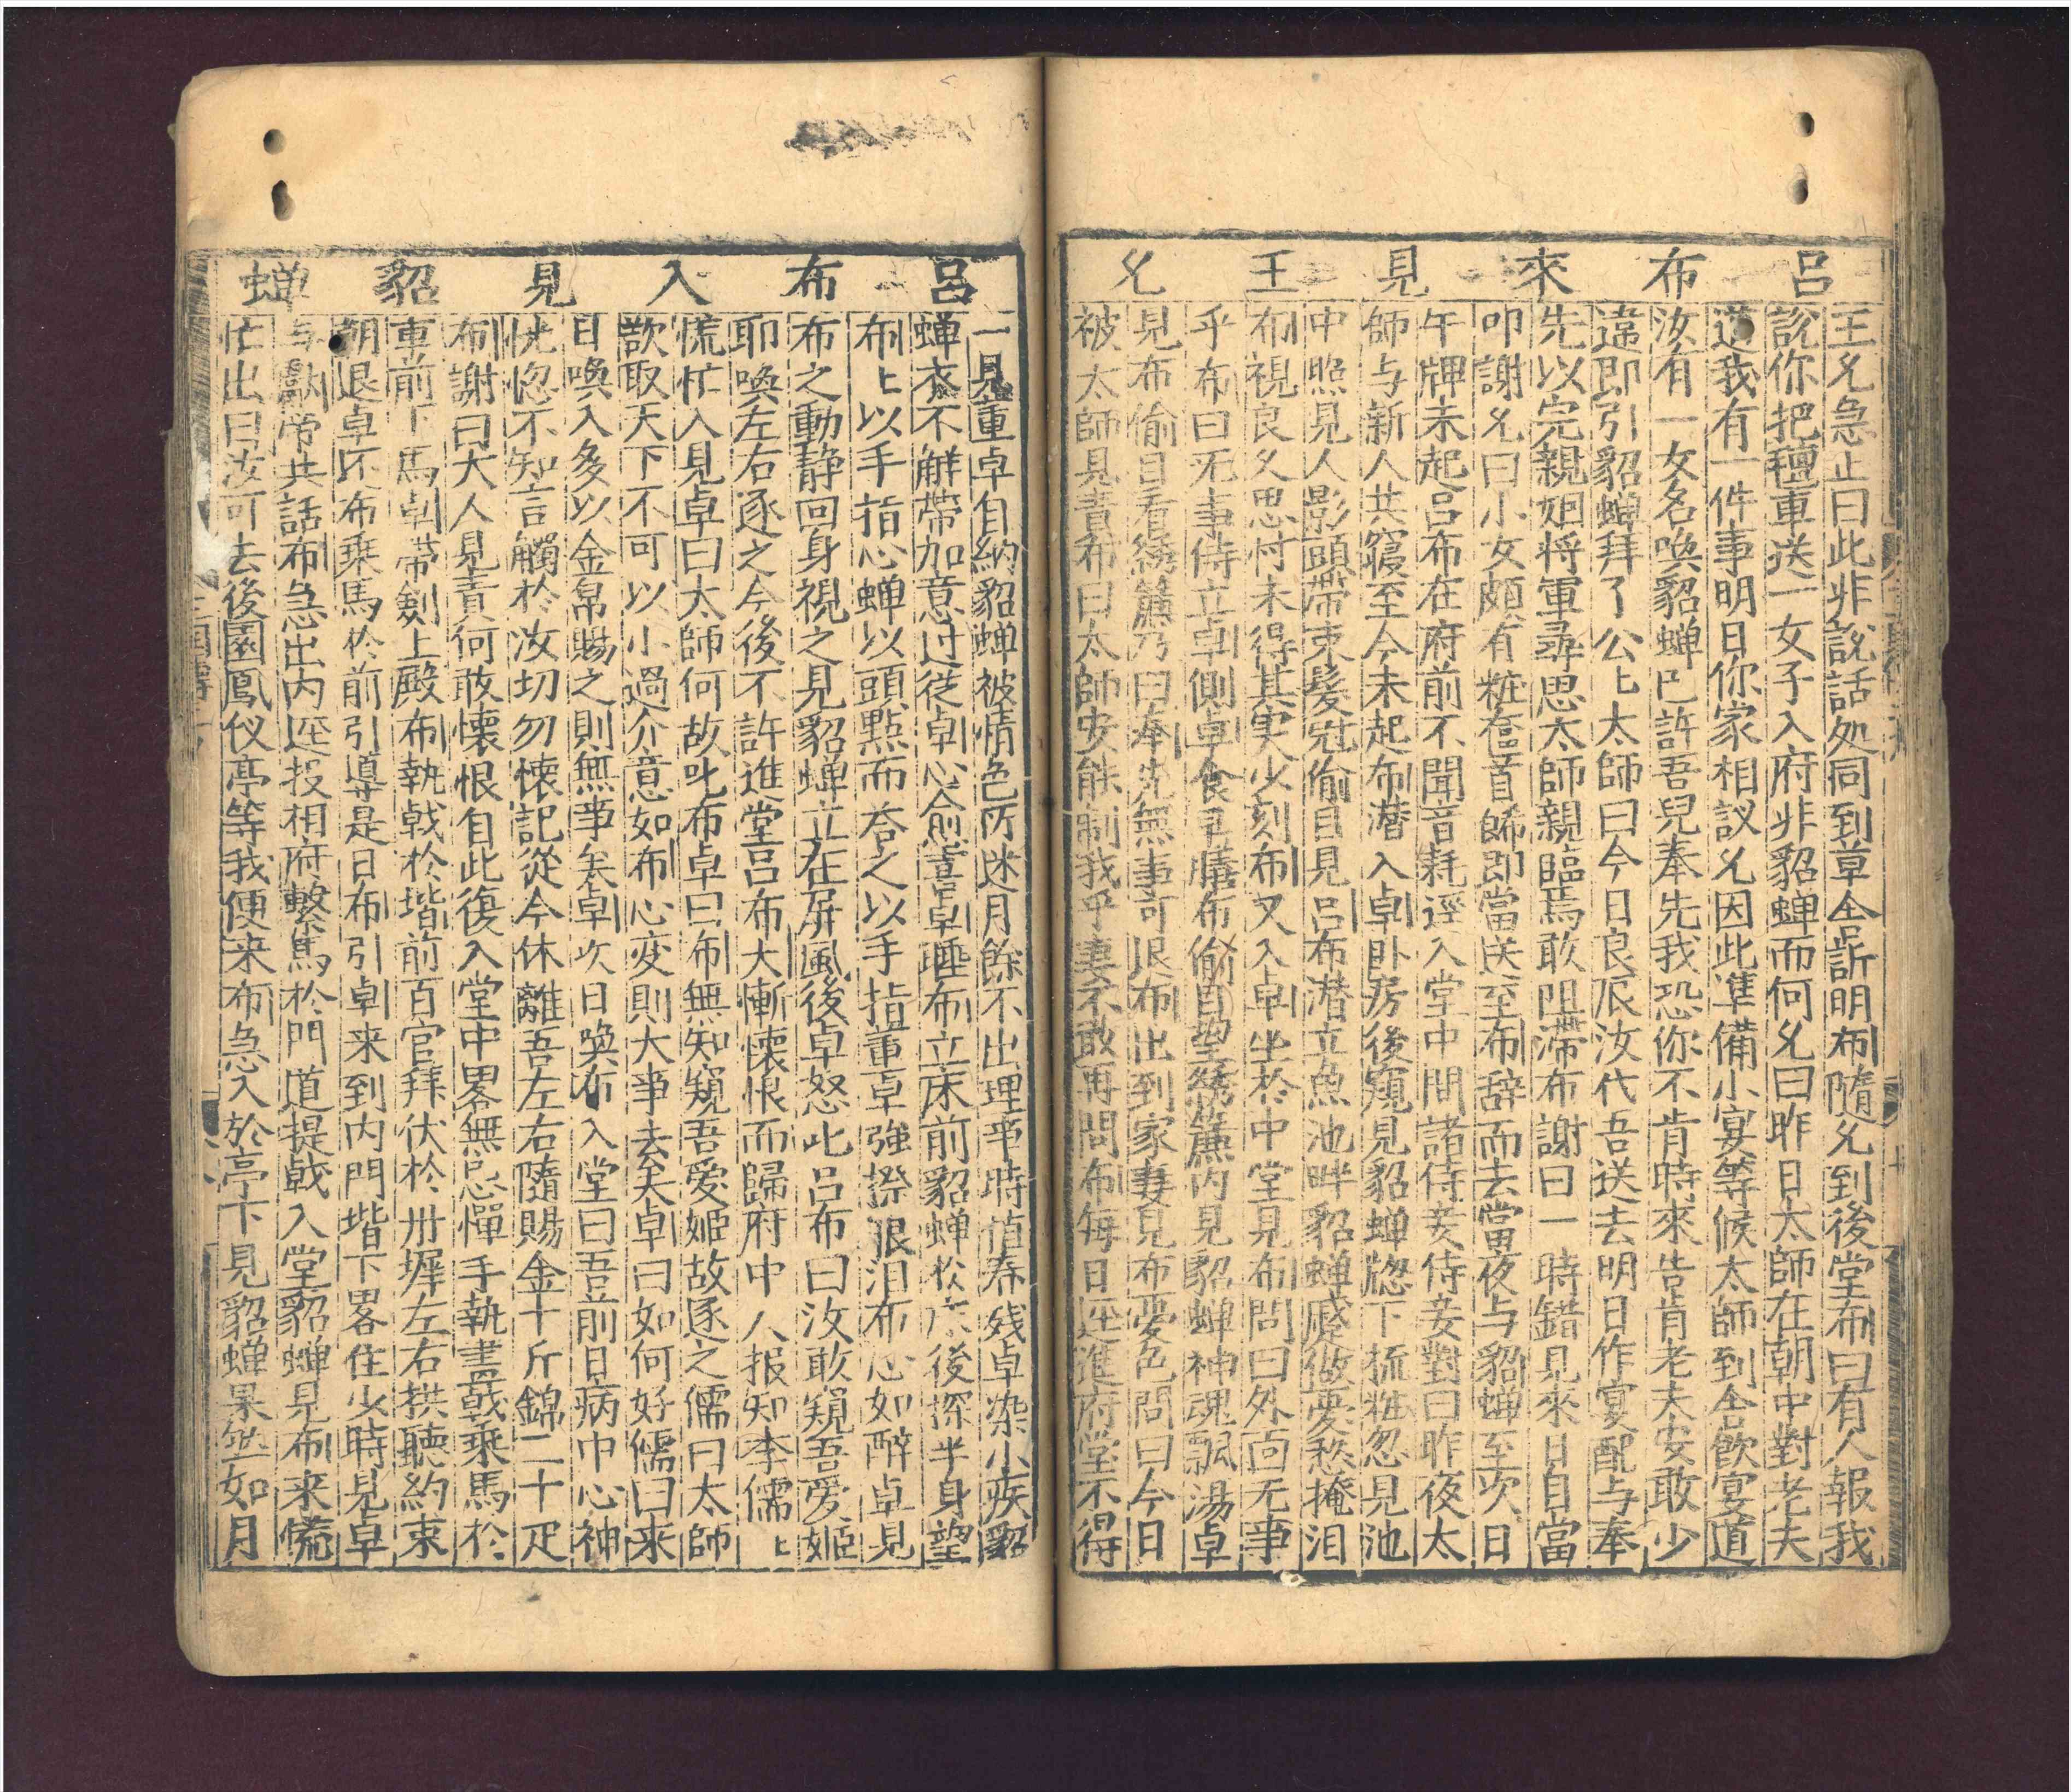 呂布來見王允
王允急止曰此非說話処同到草舍訴明布隨允到後堂布曰有人報我
說你把氊車送一女子入府非貂蟬而何允曰昨日太師在朝中對老夫
道我有一件事明日你家相议允因此準備小宴等候太師到舍飲宴道
汝有一女名喚貂蟬已許吾兒奉先我恐你不肯時來告肯老夫安敢少
違即引貂蟬拜了公匕太師曰今日良辰汝代吾送去明日作宴配与奉
先以完親姻将軍尋思太師親臨焉敢阻滯布謝曰一時錯見來日自當
叩謝允曰小女頗有粧奩首餙即當送至布辞而去當夜与貂蟬至次日
午牌未起呂布在府前不聞音耗逕入堂中問諸侍妾侍妾對曰昨夜太
師与新人共寢至今未起布潜入卓卧房後窺見貂蟬牎下梳粧忽見池
中照見人影頭帶束髪冠偷目見呂布潜立魚池畔貂蟬蹙做憂愁掩泪
布視良久思忖未得其实少刻布又入卓坐於中堂見布問曰外面无事
乎布曰无事侍立卓側卓食早膳布偷目望綉簾内見貂蟬神魂飄湯卓
見布偷目看綉簾乃曰奉先無事可退布出到家妻見布憂色問曰今日
被太師見責布曰太師安能制我乎妻不敢再問布每日逕進府堂不得
呂布入見貂蟬
一見董卓自納貂蟬被情色所迷月餘不出理事時值春残卓染小疾貂
蟬衣不觧帶加意过從卓心愈喜卓睡布立床前貂蟬於床後探半身望
布匕以手指心蟬以頭點而荅之以手指董卓強擦眼泪布心如醉卓見
布之動静回身視之見貂蟬立在屏風後卓怒叱呂布曰汝敢窺吾愛姬
耶喚左右逐之今後不許進堂呂布大慚懷恨而歸府中人报知李儒匕
慌忙入見卓曰太師何故叱布卓曰布無知窺吾愛姬故逐之儒曰太師
欲取天下不可以小過介意如布心変則大事去矣卓曰如何好儒曰来
日喚入多以金帛賜之則無事矣卓次日喚布入堂曰吾前日病中心神
恍惚不知言觸於汝切勿懷記從今休離吾左右隨賜金十斤錦二十疋
布謝曰大人見責何敢懷恨自此復入堂中畧無忌憚手執畫戟乗馬於
車前下馬卓帶剣上殿布執戟於堦前百官拜伏於丹墀左右拱聽約束
朝退卓坯布乗馬於前引導是日布引卓来到内門堦下畧住少時見卓
与獻帝共話布急出内逕投相府繫馬於門道提戟入堂貂蟬見布来慌
忙出曰汝可去後園鳳仪亭等我便来布急入於亭下見貂蟬果然如月